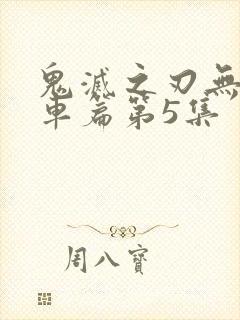 鬼滅之刃無
車篇第5集
周八寶